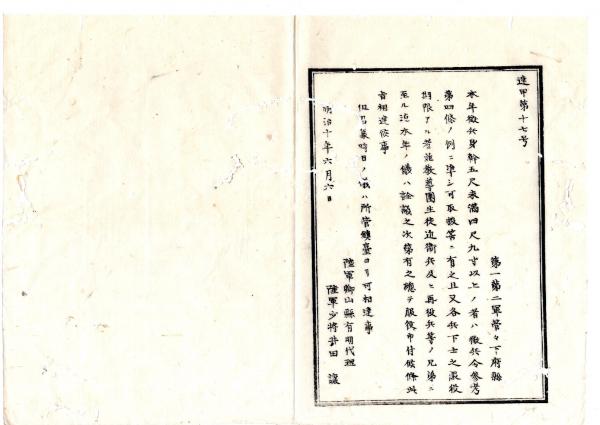 達甲第十七号
第一第二軍管々下府縣
本年徴兵身幹五尺未満四尺九寸以上ノ者ハ徴兵令参考
第四條ノ例ニ準シ可取扱筈ニ有之且又各兵下士之服役
期限アル者並教導團生徒近衛兵及ヒ再役兵等ノ兄弟ニ
至ル迄本年ノ儀ハ詮議之次第有之總テ服役申付候條此
旨相達候事
但召募時日ノ儀ハ所管鎮臺ヨリ可相達事
明治十年六月六日
陸軍卿山縣有朋代理
陸軍少將井田 讓